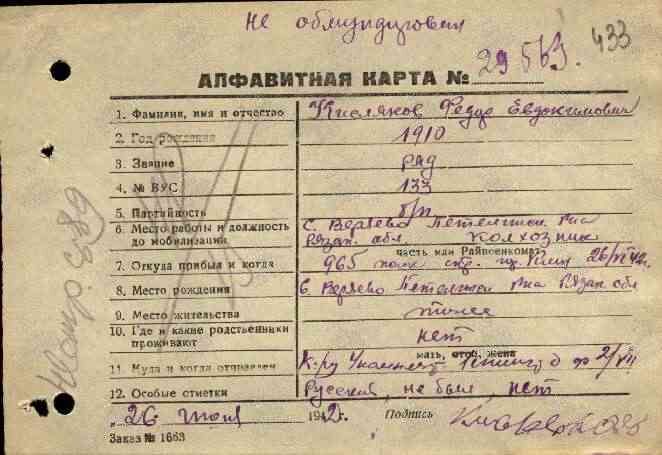 Не обмундирован
433
АЛФАВИТНАЯ КАРТА № 29569.
1. Фамилия, имя и отчество Кисляков Федор Евдокимович
2. Год рождения 1910
3. Звание ряд
4. № ВУС 133
5. Партийность б/п
6. Место работы и должность с. Веряево Пителинск. р-на
до мобилизации Рязан. обл колхозник
часть или Райвоенкомат
7. Откуда прибыл и когда 965 полк 26/VI 42г.
8. Место рождения с. Веряево Пителинск р-на Рязан обл
9. Место жительства тоже
10. Где и какие родственники
проживают нет
мать, отец, жена
11. Куда и когда отправлен 2/VII
12. Особые отметки Русский, не был, нет
„26 июня 1942г. Подпись
Заказ № 1663